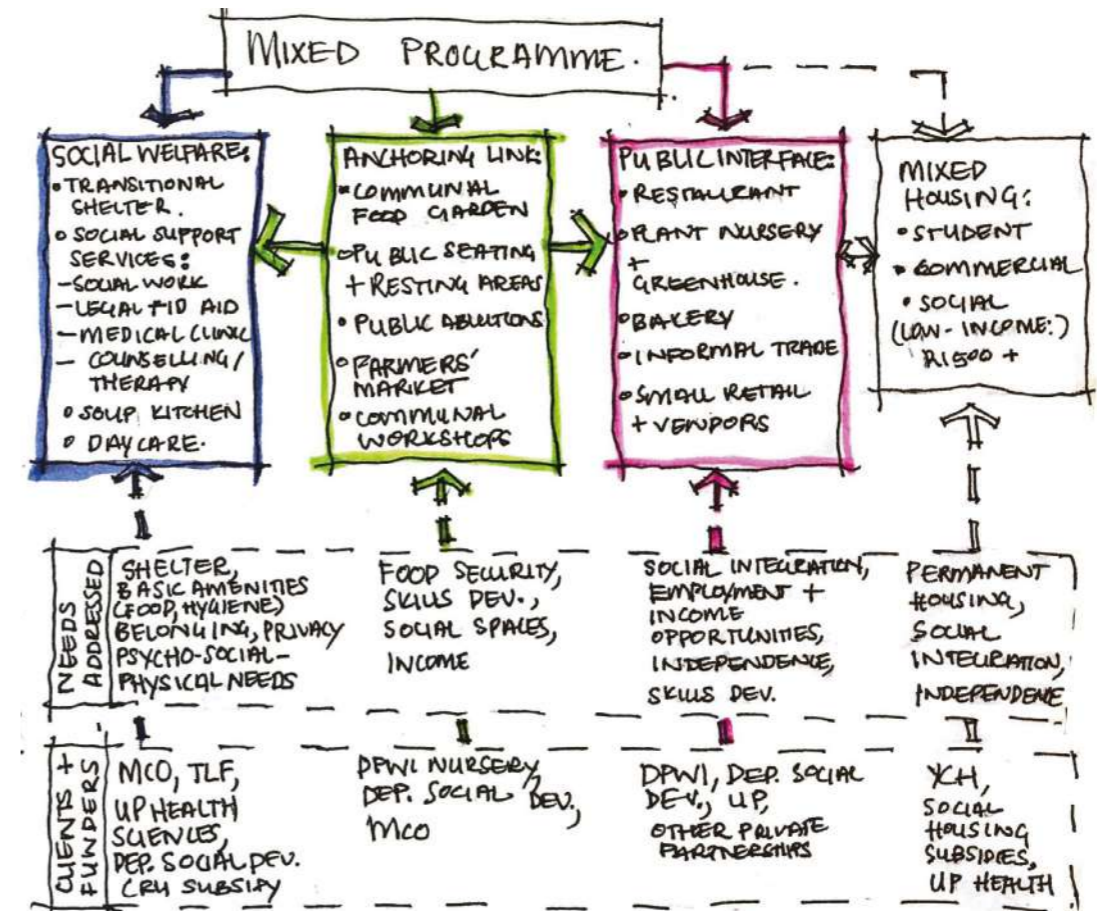 MIXED PROGRAMME.
SOCIAL WELFARE:
• TRANSITIONAL
SHELTER.
• SOCIAL SUPPORT
SERVICES:
- SOCIAL WORK
- LEGAL AID
- MEDICAL CLINIC
- COUNSELLING/
THERAPY
• SOUP KITCHEN
• DAYCARE.
ANCHORING LINK:
• COMMUNAL
FOOD GARDEN
• PUBLIC SEATING
+ RESTING AREAS
• PUBLIC ABLUTIONS
• FARMERS'
MARKET
• COMMUNAL
WORKSHOPS
PUBLIC INTERFACE:
• RESTAURANT
• PLANT NURSERY
+
GREENHOUSE.
• BAKERY
• INFORMAL TRADE
• SMALL RETAIL
+ VENDORS
MIXED
HOUSING:
• STUDENT
• COMMERCIAL
• SOCIAL
(LOW-INCOME:)
R1500 +
NEEDS
ADDRESSED
SHELTER,
BASIC AMENITIES
(FOOD, HYGIENE)
BELONGING, PRIVACY
PSYCHO-SOCIAL-
PHYSICAL NEEDS
FOOD SECURITY,
SKILLS DEV.,
SOCIAL SPACES,
INCOME
SOCIAL INTEGRATION,
EMPLOYMENT +
INCOME
OPPORTUNITIES,
INDEPENDENCE,
SKILLS DEV.
PERMANENT
HOUSING,
SOCIAL
INTEGRATION,
INDEPENDENCE
CLIENTS +
FUNDERS
MCO, TLF,
UP HEALTH
SCIENCES,
DEP. SOCIAL DEV.
CRU SUBSIDY
DPWI NURSERY,
DEP. SOCIAL DEV.,
MCO
DPWI, DEP. SOCIAL
DEV., UP,
OTHER PRIVATE
PARTNERSHIPS
YCH,
SOCIAL
HOUSING
SUBSIDIES,
UP HEALTH